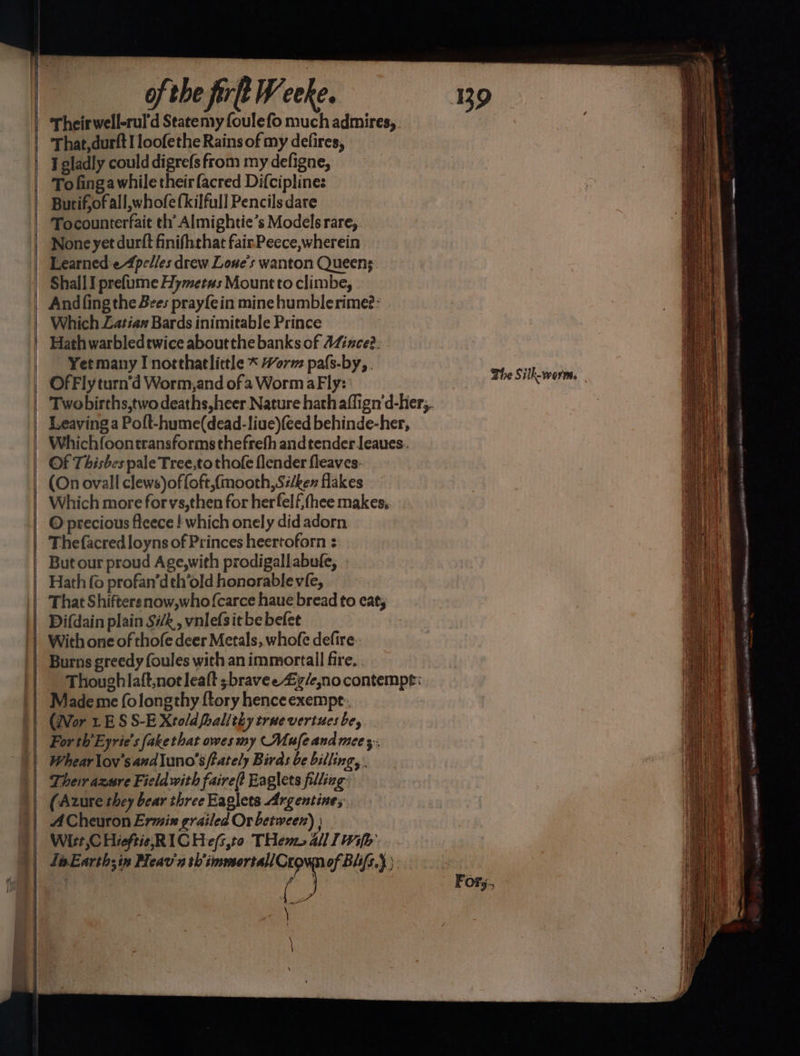 of the firſt Weeke. 139
Their well-rul'd State my ſoule ſo much admires,
That, durſt I looſe the Rains of my deſires,
I gladly could digreſs from my deſigne,
To ſing a while their ſacred Diſcipline:
But if, of all, whoſe ſkilfull Pencils dare
To counterfait th' Almightie's Models rare,
None yet durſt finiſh that fair Peece, wherein
Learned Apelles drew Loue's wanton Queen;
Shall I preſume Hymetus Mount to climbe,
And ſing the Bees prayſe in mine humble rime?
Which Latian Bards inimitable Prince
Hath warbled twice about the banks of Mince?
Yet many I not that little * Worm paſs-by,
The Silk-worm.
Of Fly turn'd Worm, and of a Worm a Fly:
Two births, two deaths, heer Nature hath aſſign'd-her,
Leaving a Poſt-hume (dead-liue) ſeed behinde-her,
Which ſoon transforms the freſh and tender leaues
Of Thisbes pale Tree, to thoſe ſlender ſleaves
(On ovall clews) of ſoft, ſmooth, Silken flakes
Which more for vs, then for her ſelf, ſhee makes,
O precious fleece! which onely did adorn
The ſacred loyns of Princes heertoforn:
But our proud Age, with prodigall abuſe,
Hath ſo profan'd th'old honorable vſe,
That Shifters now, who ſcarce haue bread to eat,
Diſdain plain Silk, vnleſs it be beſet
With one of thoſe deer Metals, whoſe deſire
Burns greedy ſoules with an immortall fire.
Though laſt, not leaſt; brave Ægle, no contempt
Made me ſo long thy ſtory hence exempt
(Nor LESS-EX told ſhall thy true vertues be,
For th'Eyrie's ſake that owes my Muſe and mee;
Whear Iov's and Iuno's ſtately Birds be billing,
Their azure Field with faireſt Eaglets filling
(Azure they bear three Eaglets Argentine,
A Cheuron Ermin grailed Or between)
Wist, CHieftie, RICHeſs, to THem all I Wiſh
In Earth; in Heav'n th'immortall Crown of Bliſs.)
For,